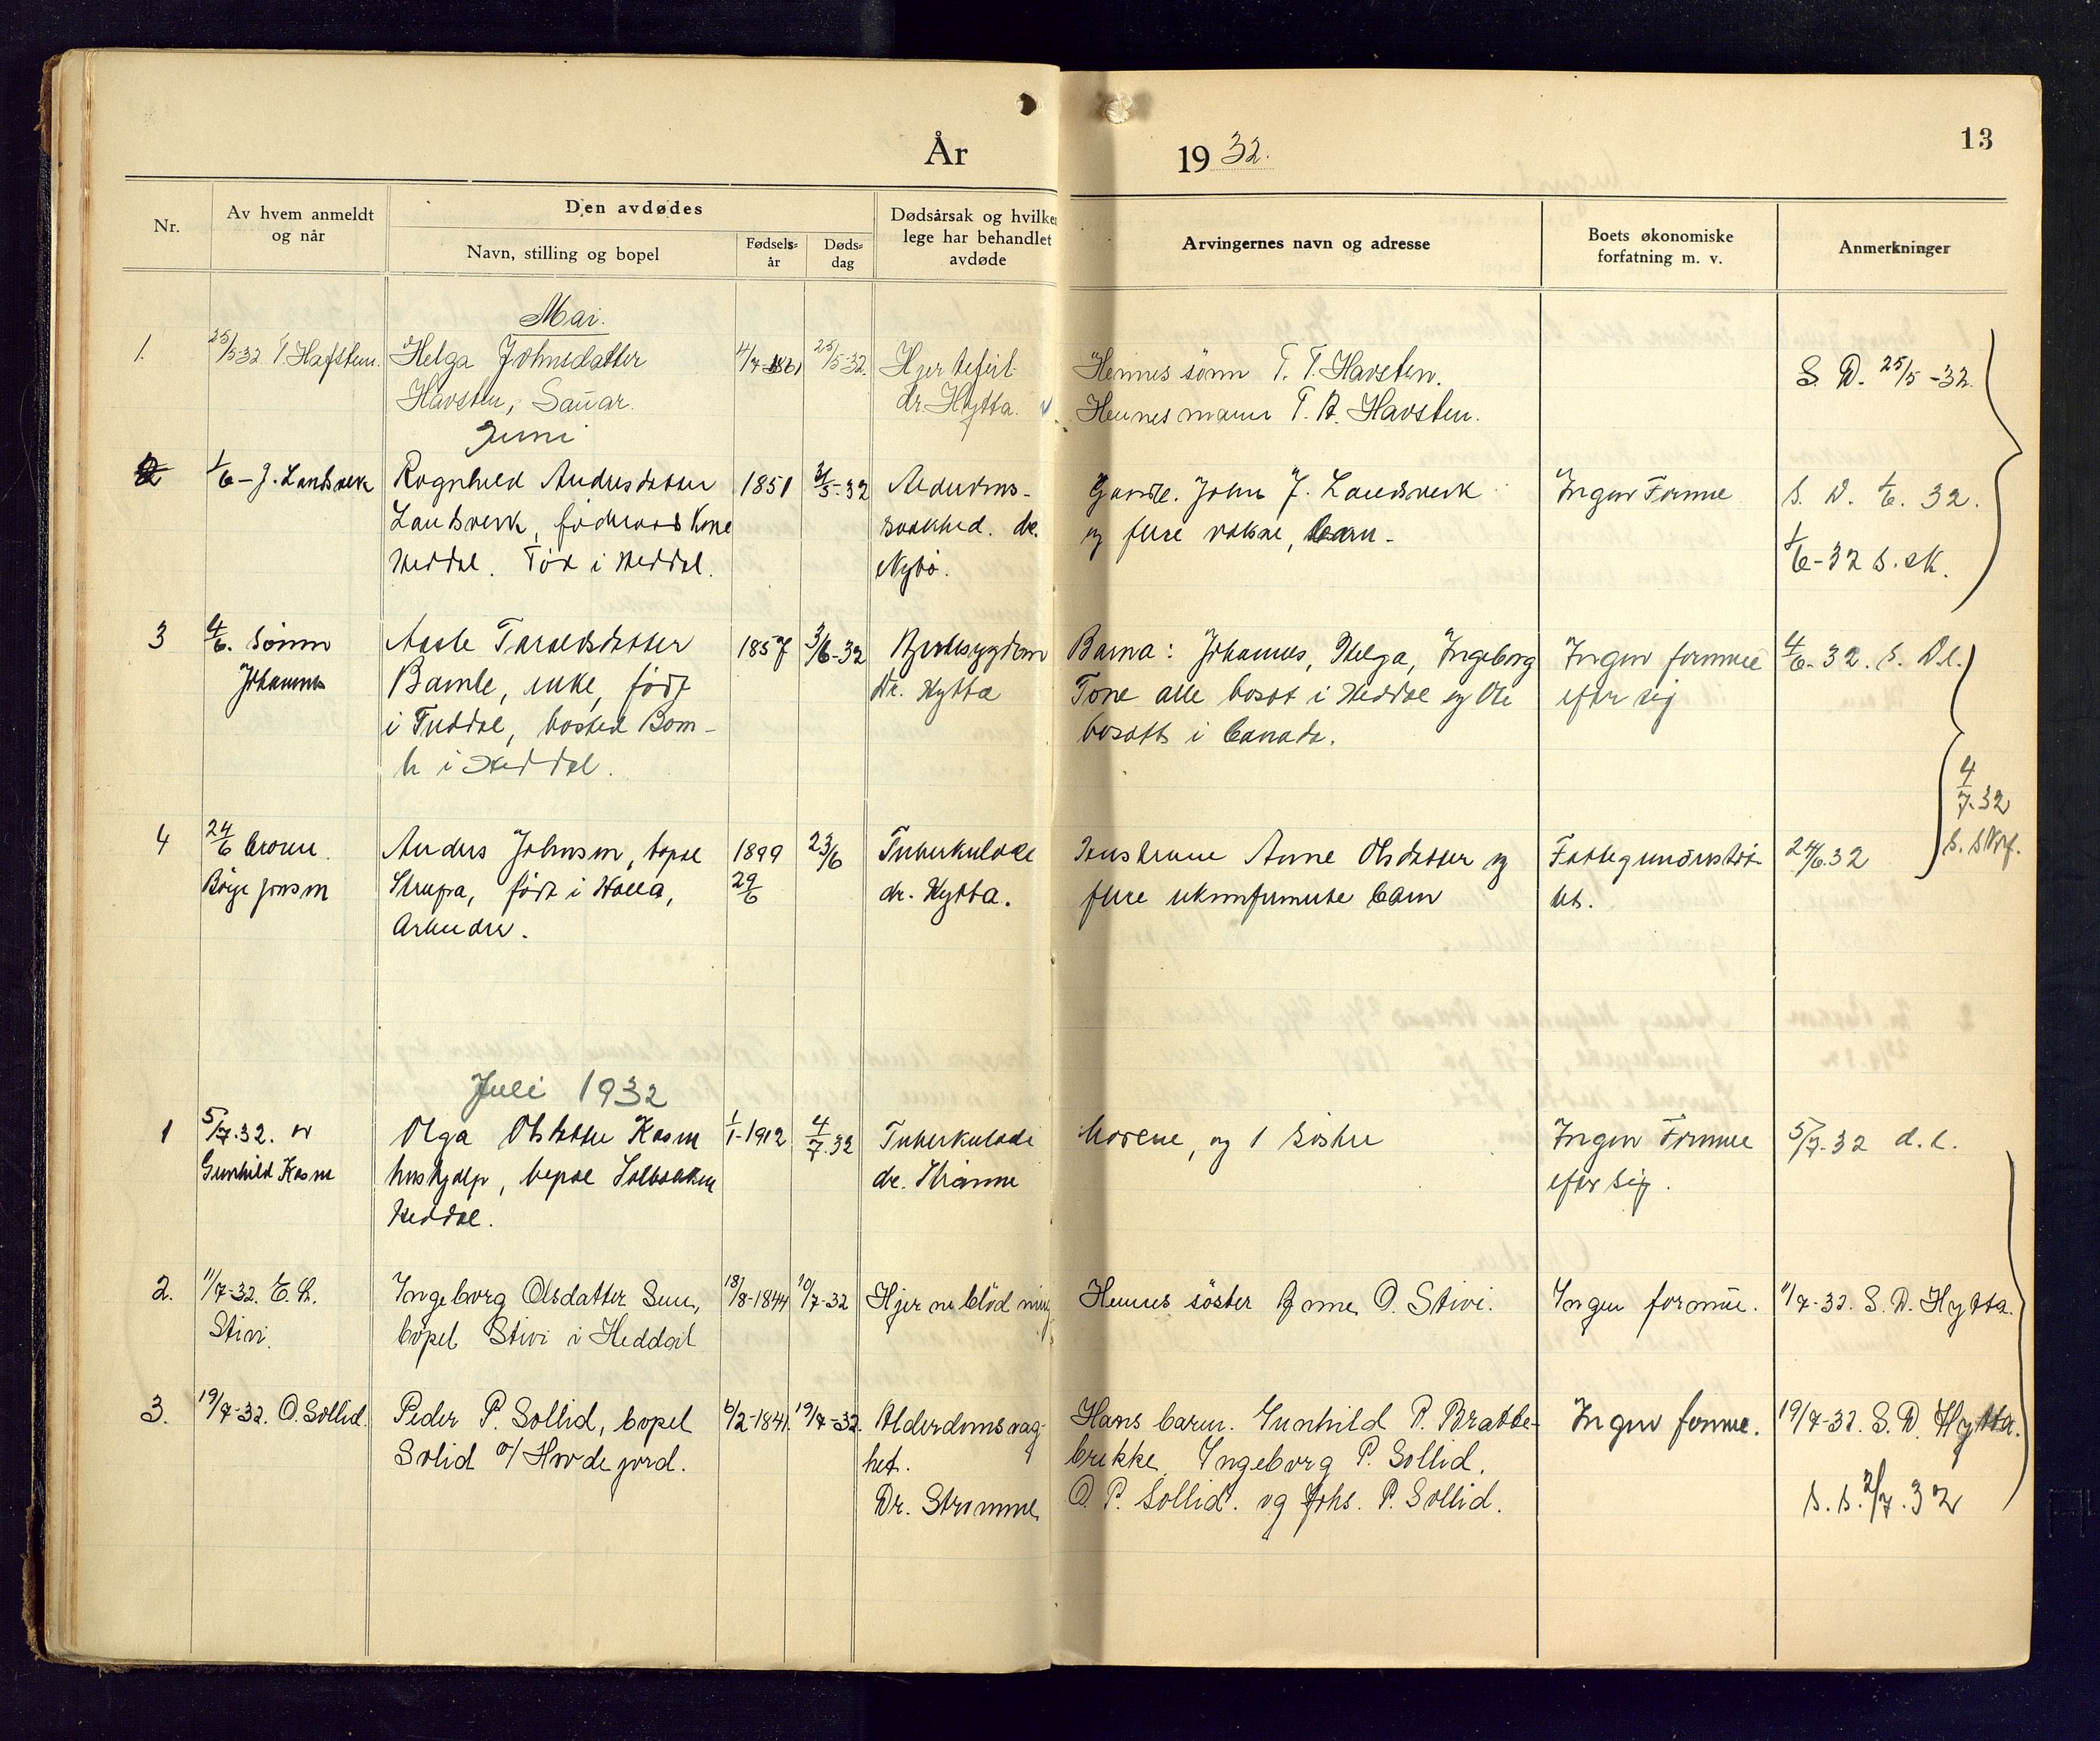 13
År 1932.
Nr.
Av hvem anmeldt
og når
Den avdødes
Navn, stilling og bopel
Fødsels-
år
Døds-
dag
Dødsårsak og hvilken
lege har behandlet
avdøde
Arvingernes navn og adresse
Boets økonomiske
forfatning m. v.
Anmerkninger
Mai.
1.
25/5 32 T. Hafsten.
Helga Johnsdatter
Havsten, Sauar.
4/7-1861
25/5-32.
Hjertefeil
dr. Hytta.
Hennes sönn T. T. Havsten.
Hennes mann T. A. Havsten.
S. D. 25/5-32.
Juni
2
1/6 - J. Landsverk
Rognhild Andresdatter
Landsverk, föderaads Kone
Heddal. Född i Heddal.
1851
31/5-32
Alderdoms-
svakhed. dr.
Nybö.
Gaardbr. John J. Landsverk
og flere voksne, barn -
Ingen Formue
S. D. 1/6. 32.
1/6-32 S. sk.
3
4/6. Sönnen
Johannes
Aasle Taraldsdatter
Bamle, enke, född
i Tuddal, bosted Bam-
le i Heddal.
1857
3/6-32
Hjertesygdom
Dr. Hytta
Barna: Johannes, Helga, Ingeborg
Tone alle bosat i Heddal og Ole
bosatt i Canada.
Ingen formue
efter sig
4/6. 32. S. D.
4
24/6 broren
Börge Jonsen
Anders Johnsen, bopæl
Strupa, född i Holla,
Arbeider.
1899
29/6
23/6
Tuberkulose
dr. Hytta.
Enke Anne Olsdatter og
flere ukonfirmerte barn
Fattigunderstöt-
tet.
24/6. 32
4/7. 32
S. Skrf.
Juli 1932
1
5/7. 32. av
Gunhild Kasin
Olga Olsdatter Kasin
hushjælp, bopæl Solbakken
Heddal.
1/1-1912
4/7. 32
Tuberkulose
dr. Strömme
Moren, og 1 söster
Ingen Formue
efter sig.
5/7-32 d. l.
2.
11/7-32. E. H.
Stivi.
Ingeborg Olsdatter Sem,
bopel Stivi i Heddal
18/8-1844
10/7-32
Hjerneblödning
Hennes söster Gunne O. Stivi.
Ingen formue.
11/7-32. S. D. Hytta.
3.
19/7-32. O. Sollid.
Peder P. Sollid, bopel
Solid o/ Hovde jord.
6/2-1841.
19/7-32.
Alderdomsvag-
het.
Dr. Strömme
Hans barn. Gunhild P. Bratte-
brekke, Ingeborg P. Sollid.
O. P. Sollid. og Johs. P. Sollid.
Ingen formue.
19/7-32. S. D. Hytta.